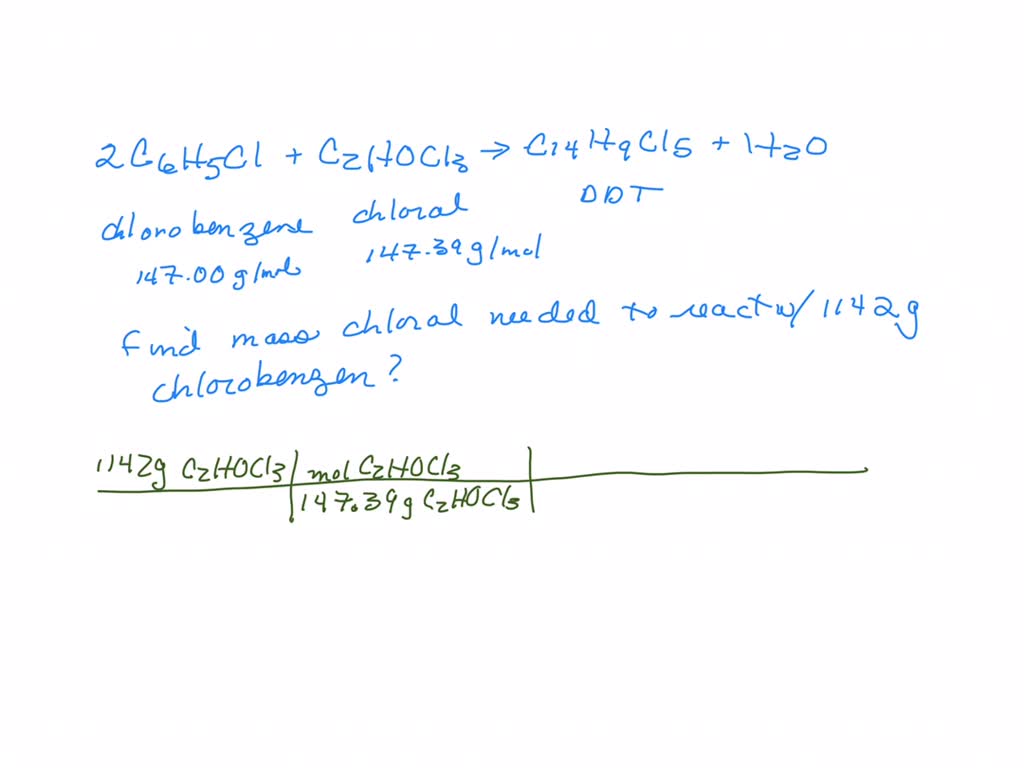 2C6H5Cl + C2HOCl3 → C14H9Cl5 + H2O
chlorobenzene chloral DDT
147.00 g/mol 147.39 g/mol
Find mass chloral needed to react w/ 1142g
chlorobenzen?
1142g C2HOCl3 | mol C2HOCl3
147.39 g C2HOCl3